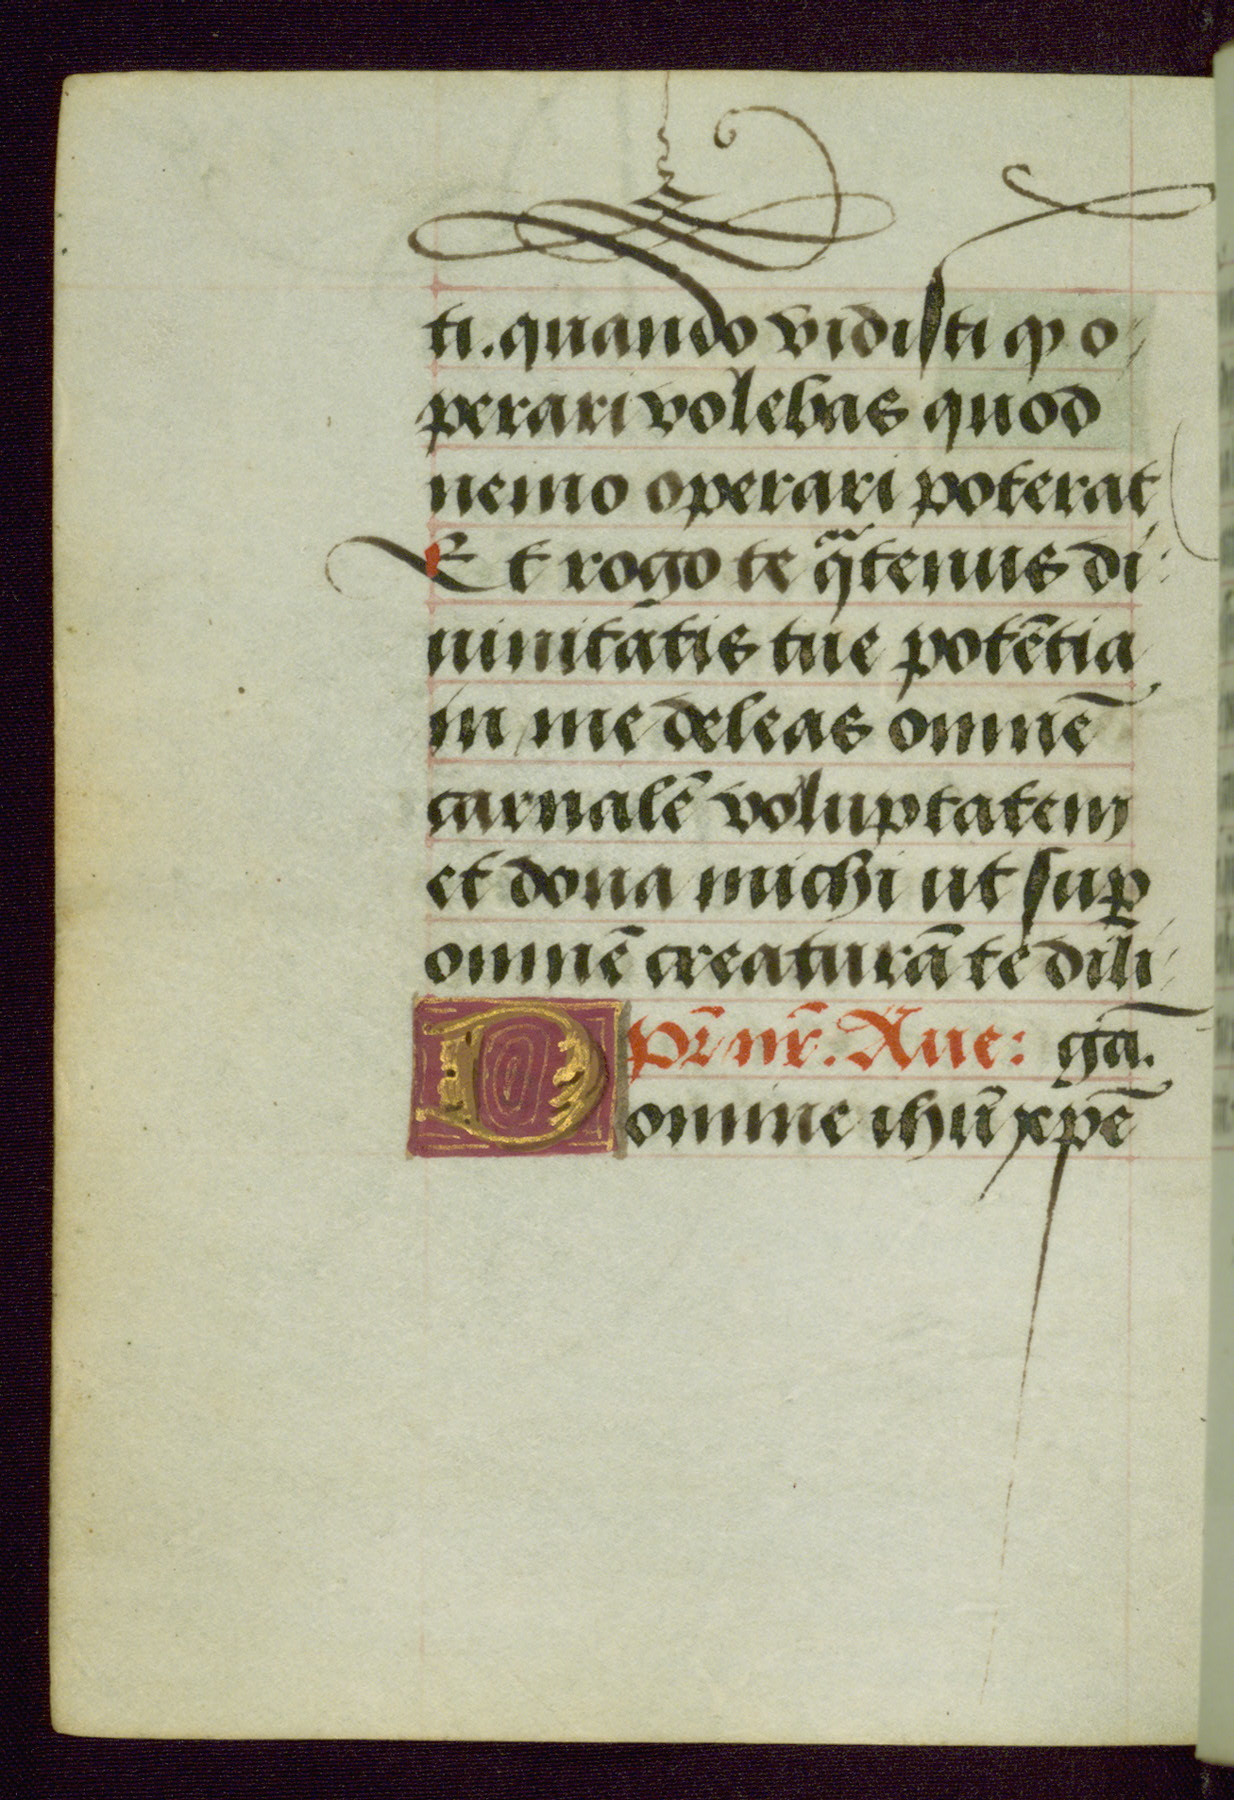 ti. quando vidisti ꝙ o
perari volebas quod
nemo operari poterat
Et rogo te qͣtenus di
uinitatis tue potētia
in me deleas omnē
carnalē voluptatem
et dona michi ut suꝑ
omnē creaturā te dili
pr̄ nr̄. Aue: gā.
Domine ihū xp̄e